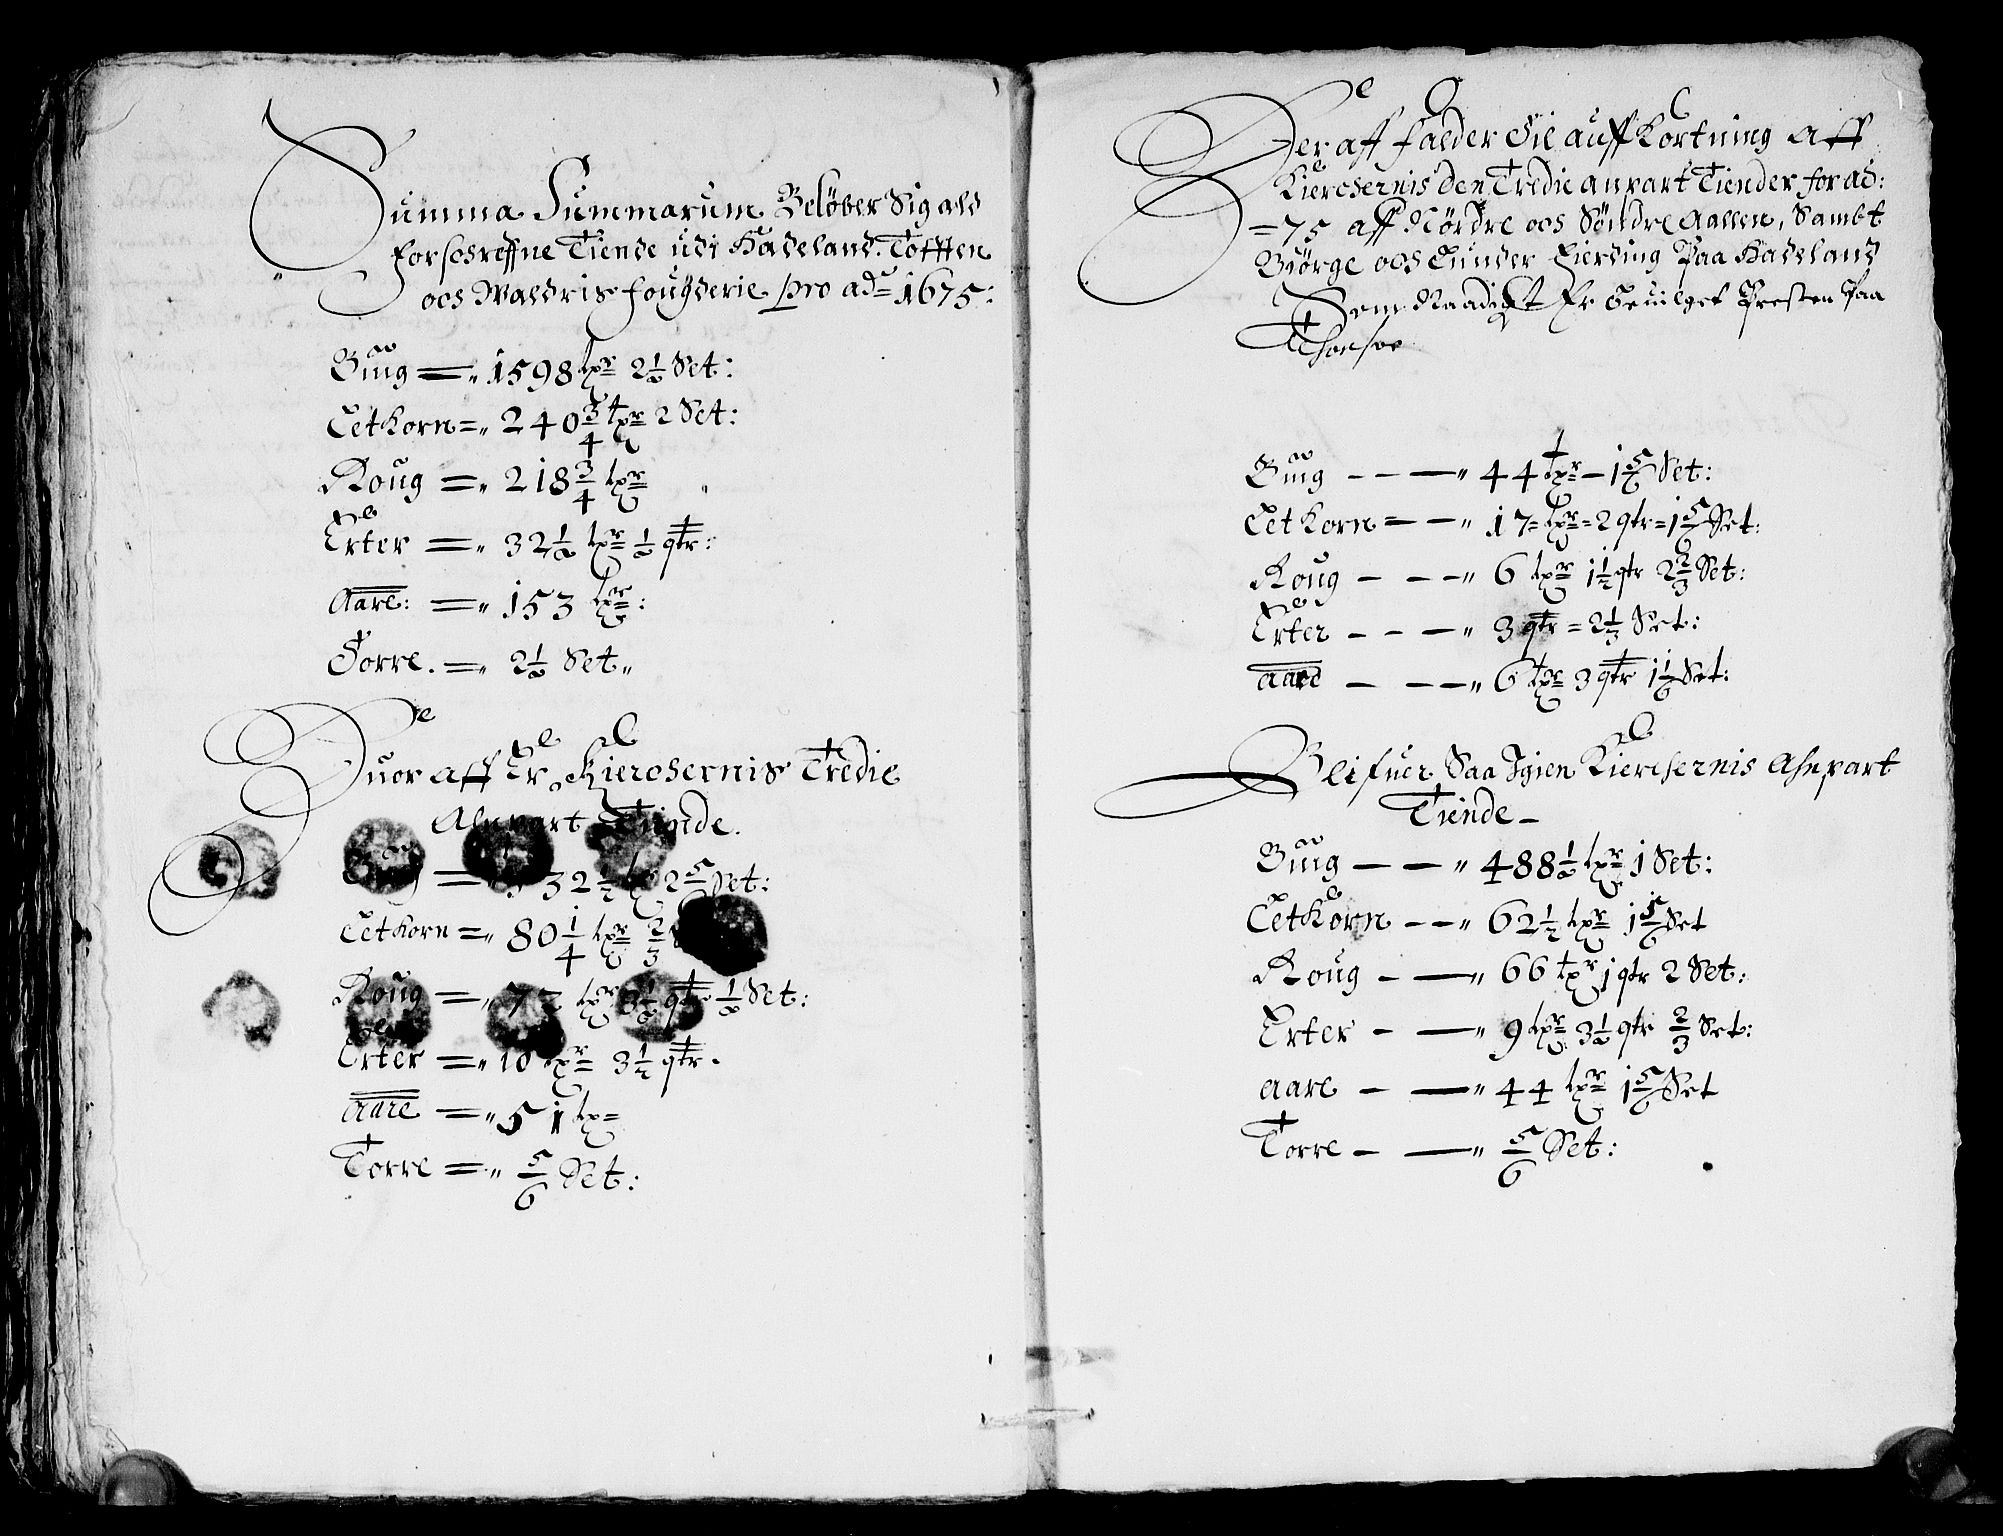 Summa Summarum Beløber Sig ald
forschreffne Tiende udi Hadeland. Totten
och Waldris fougderie pro ad= 1675:
Biug = 1598 tpr 2½ Set:
Letkorn = 240¾ tpr 2 Set:
Roug = 218¾ tpr
Erter = 32½ tpr ½ qtr:
Aare: = 153 tpr:
Torre. = 2½ Set
Huor aff Er Kierchernis Tredie
Anpart Tiende.
Biug = 532½ tpr 2 5/6 Set:
Letkorn = 80¼ tpr 2/3
Roug = 72 tpr 3½ qtr ½ Set:
Erter = 10 tpr 3½ qtr.
Aare = 51 tp=
Torre = 5/6 Set:
Der aff falder Til auffkortning aff
Kierchernis den Tredie anpart Tiender for ad:
=75 aff Nördre och Söndre Aallen, Sambt
Biörge och Lunder Fierding Paa Hadeland
Som Naadigst Er Beuilget Presten Paa
Biug – – — 44 tpr – 1 5/6 Set:
Letkorn = — 17 = tpr = 2 qtr = 1 5/6 Set:
Roug – – — 6 tpr 1½ qtr 2 2/3 Set:
Erter – – — 3 qtr = 2 1/3 Set:
Aare – – — 6 tpr 3 qtr 1 1/6 Set:
Blifuer Saa Igien Kierchernis Anpart
Tiende –
Biug — — 488½ tpr 1 Set:
Letkorn — — 62½ tpr 1 5/6 Set
Roug – — 66 tpr 1 qtr 2 Set:
Erter – — 9 tpr 3½ qtr 2/3 Set:
Aare – — 44 tpr 1 5/6 Set
Torre – — 5/6 Set: